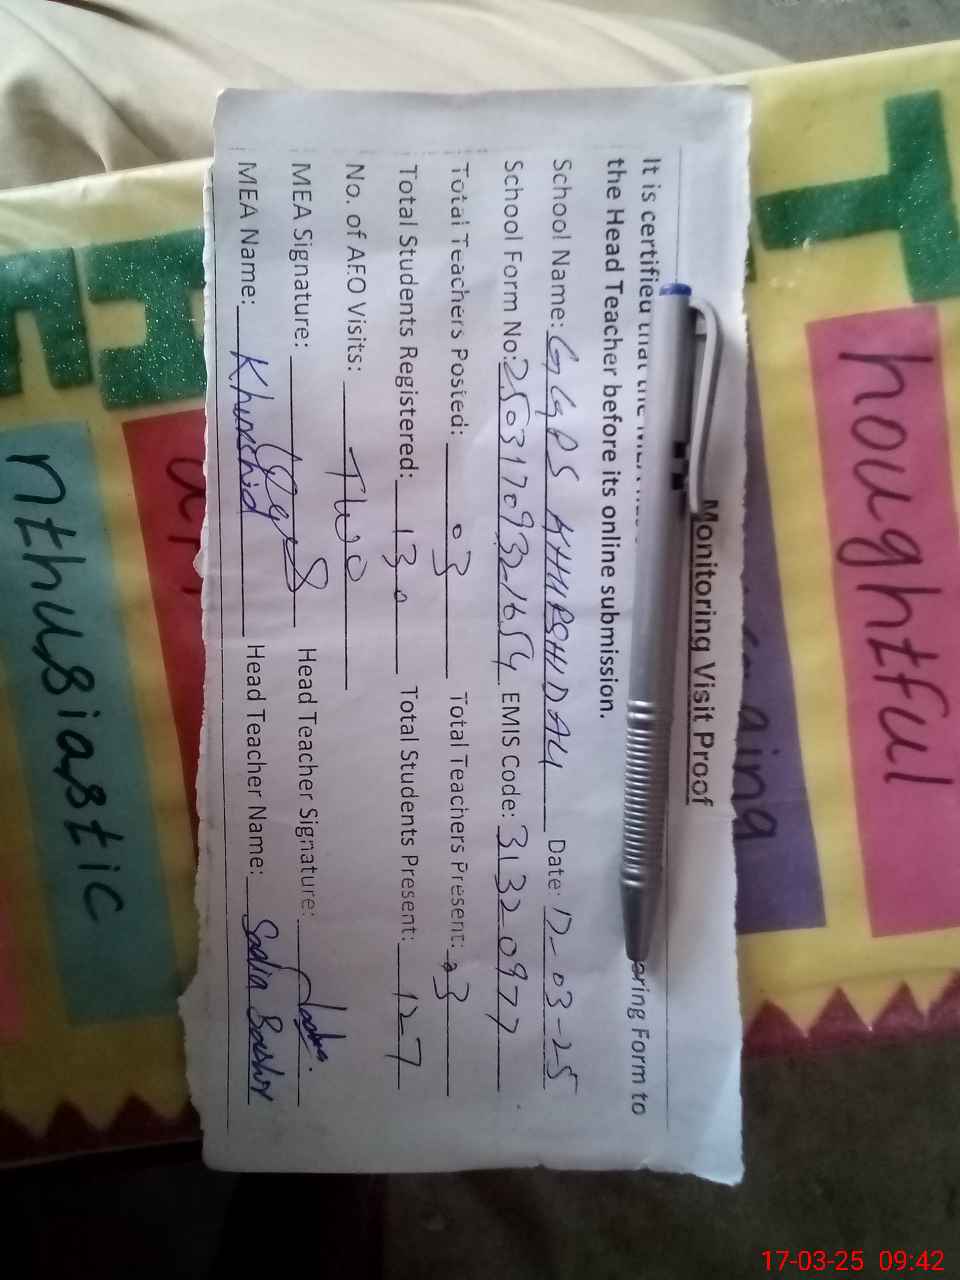 Monitoring Visit Proof
It is certified that the MEA has ering Form to
the Head Teacher before its online submission.
School Name: GGPS KHHRSHID ALI Date: 17-03-25
School Form No: 25031709321654 EMIS Code: 31320977
Total Teachers Posted: 03 Total Teachers Present: 03
Total Students Registered: 130 Total Students Present: 127
No. of AEO Visits: Two
MEA Signature: Head Teacher Signature:
MEA Name: Khurshid Head Teacher Name: Sadia Bashir
houghtful
aing
nthusiastic
17-03-25 09:42